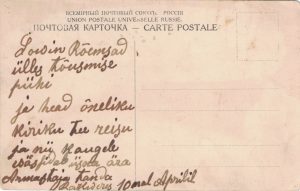 ВСЕМІРНЫЙ ПОЧТОВЫЙ СОЮЗЪ. РОССІЯ
UNION POSTALE UNIVERSELLE RUSSIE.
ПОЧТОВАЯ КАРТОЧКА — CARTE POSTALE
Soowin Rõemsad
ülles tõusmise
pühi
ja head õneliku
Kiriku tee reisu
ja nij kaugele
ära
10mal Aprillil